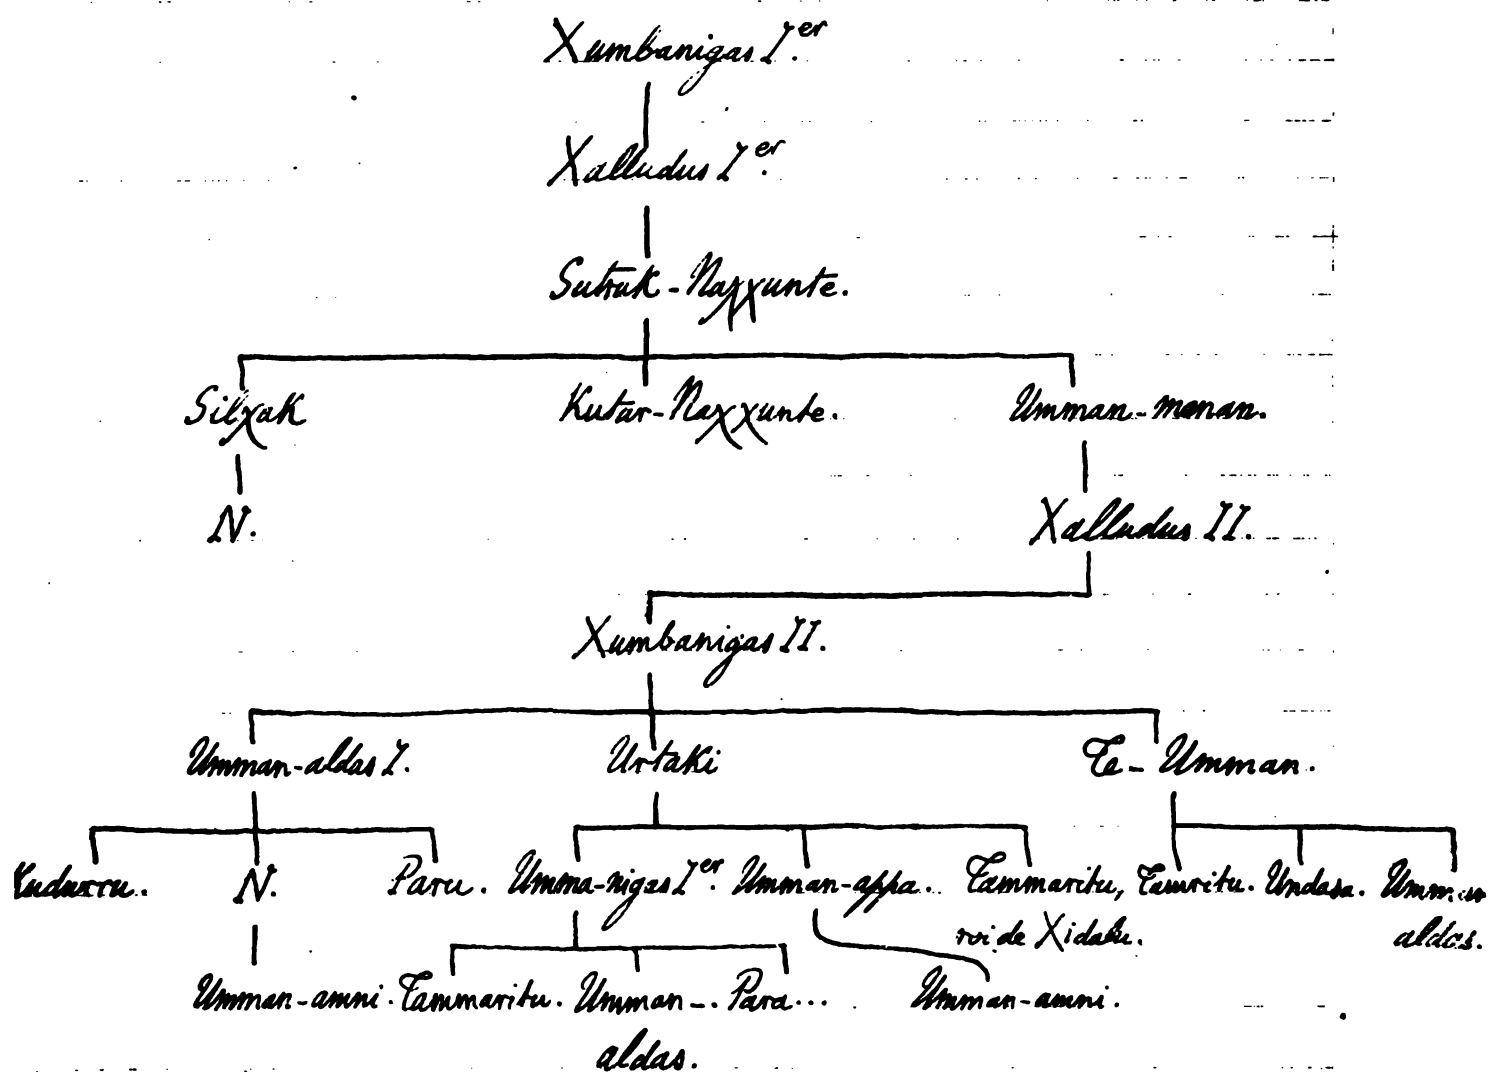 Xumbanigas I.er
Xalludus I.er
Sutruk-Naxxunte.
Silxak Kutur-Naxxunte. Umman-manan.
N. Xalludus II.
Xumbanigas II.
Umman-aldas I. Urtaki Te-Umman.
Kudurru. N. Paru. Umma-nigas I.er Umman-appa.. Tammaritu, Tamritu. Undasa. Umman
roi de Xidalu. aldas.
Umman-amni. Tammaritu. Umman-. Para... Umman-amni.
aldas.